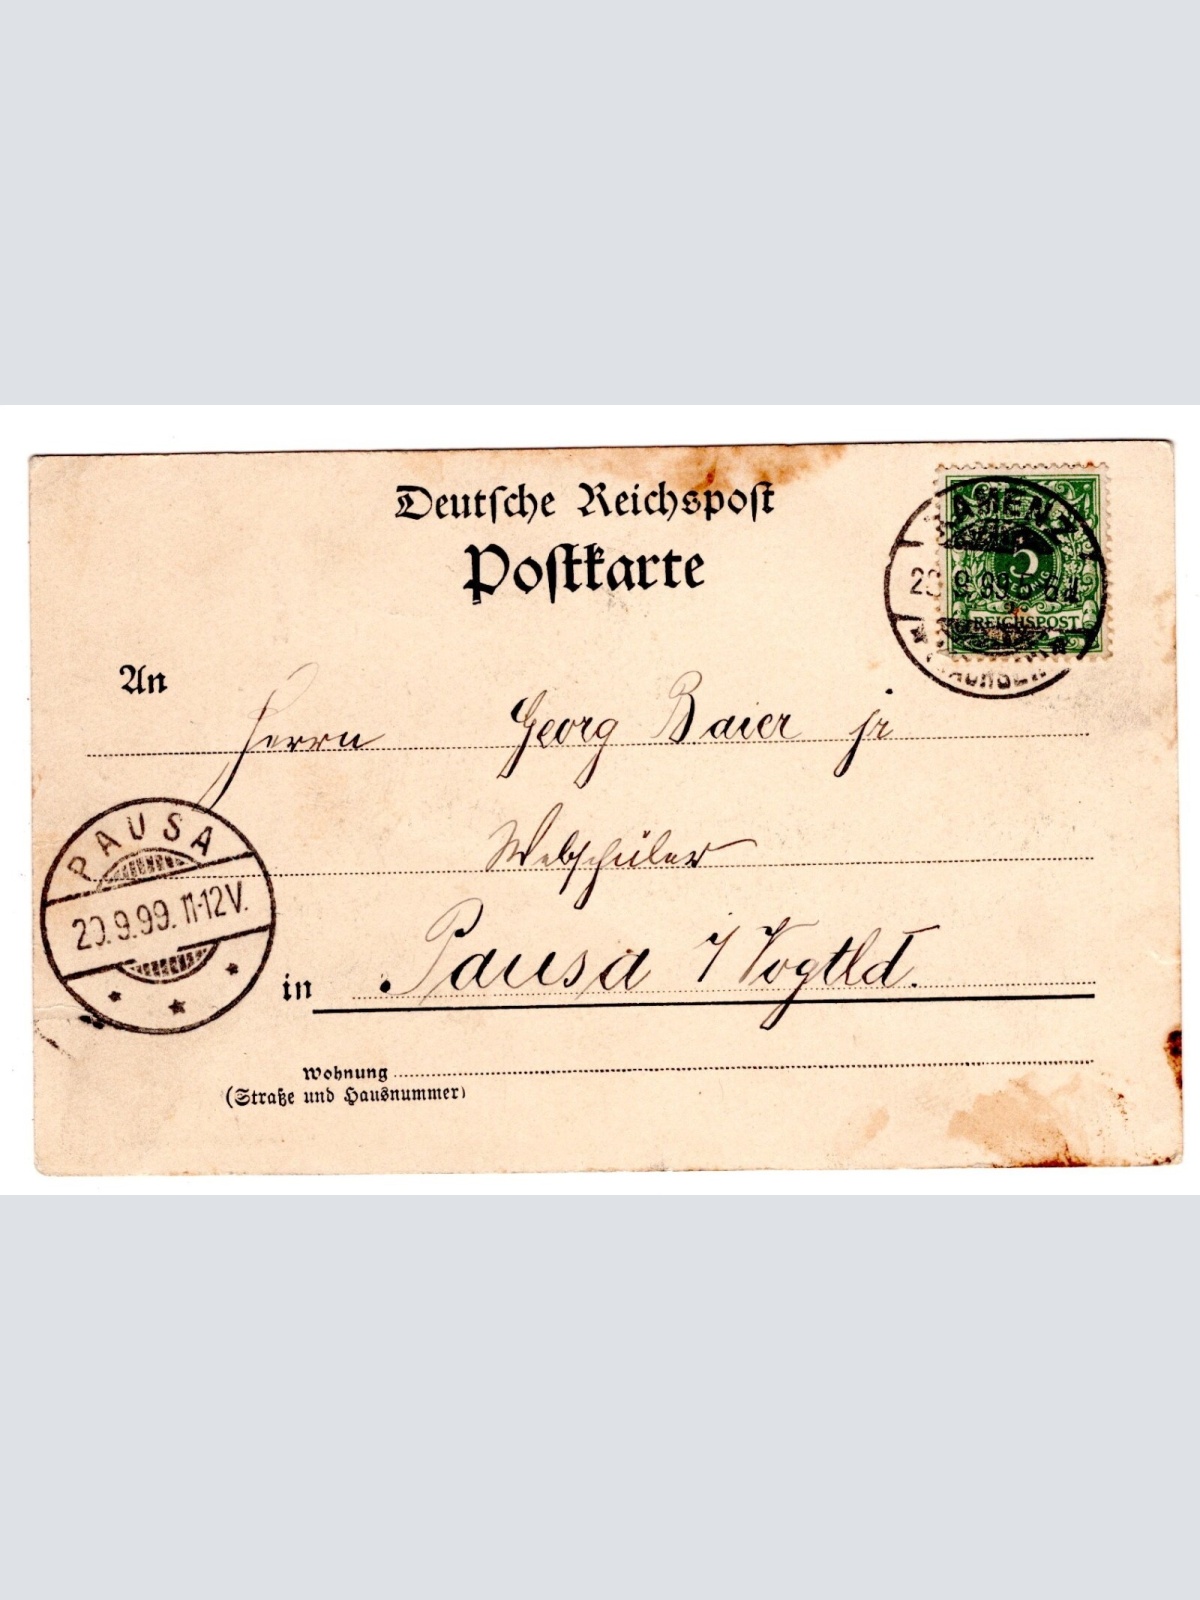 Deutsche Reichspost
Postkarte
KAMENZ
9.99.5-6
SACHSEN
5
REICHSPOST
An
Herrn Georg Baier jr
Webschüler
PAUSA
20.9.99.11-12V.
in Pausa i/Vogtld.
Wohnung
(Straße und Hausnummer)